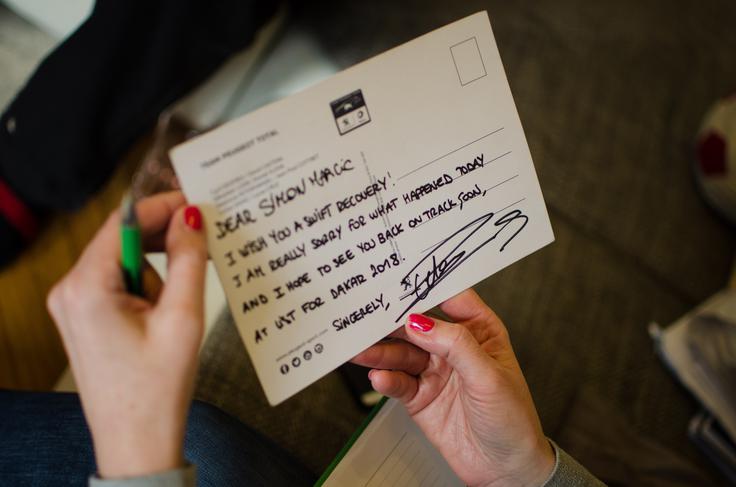 TEAM PEUGEOT TOTAL
DEAR SIMON MARCIC
I WISH YOU A SWIFT RECOVERY!
I AM REALLY SORRY FOR WHAT HAPPENED TODAY
AND I HOPE TO SEE YOU BACK ON TRACK, SOON,
AT LAST FOR DAKAR 2018.
SINCERELY,